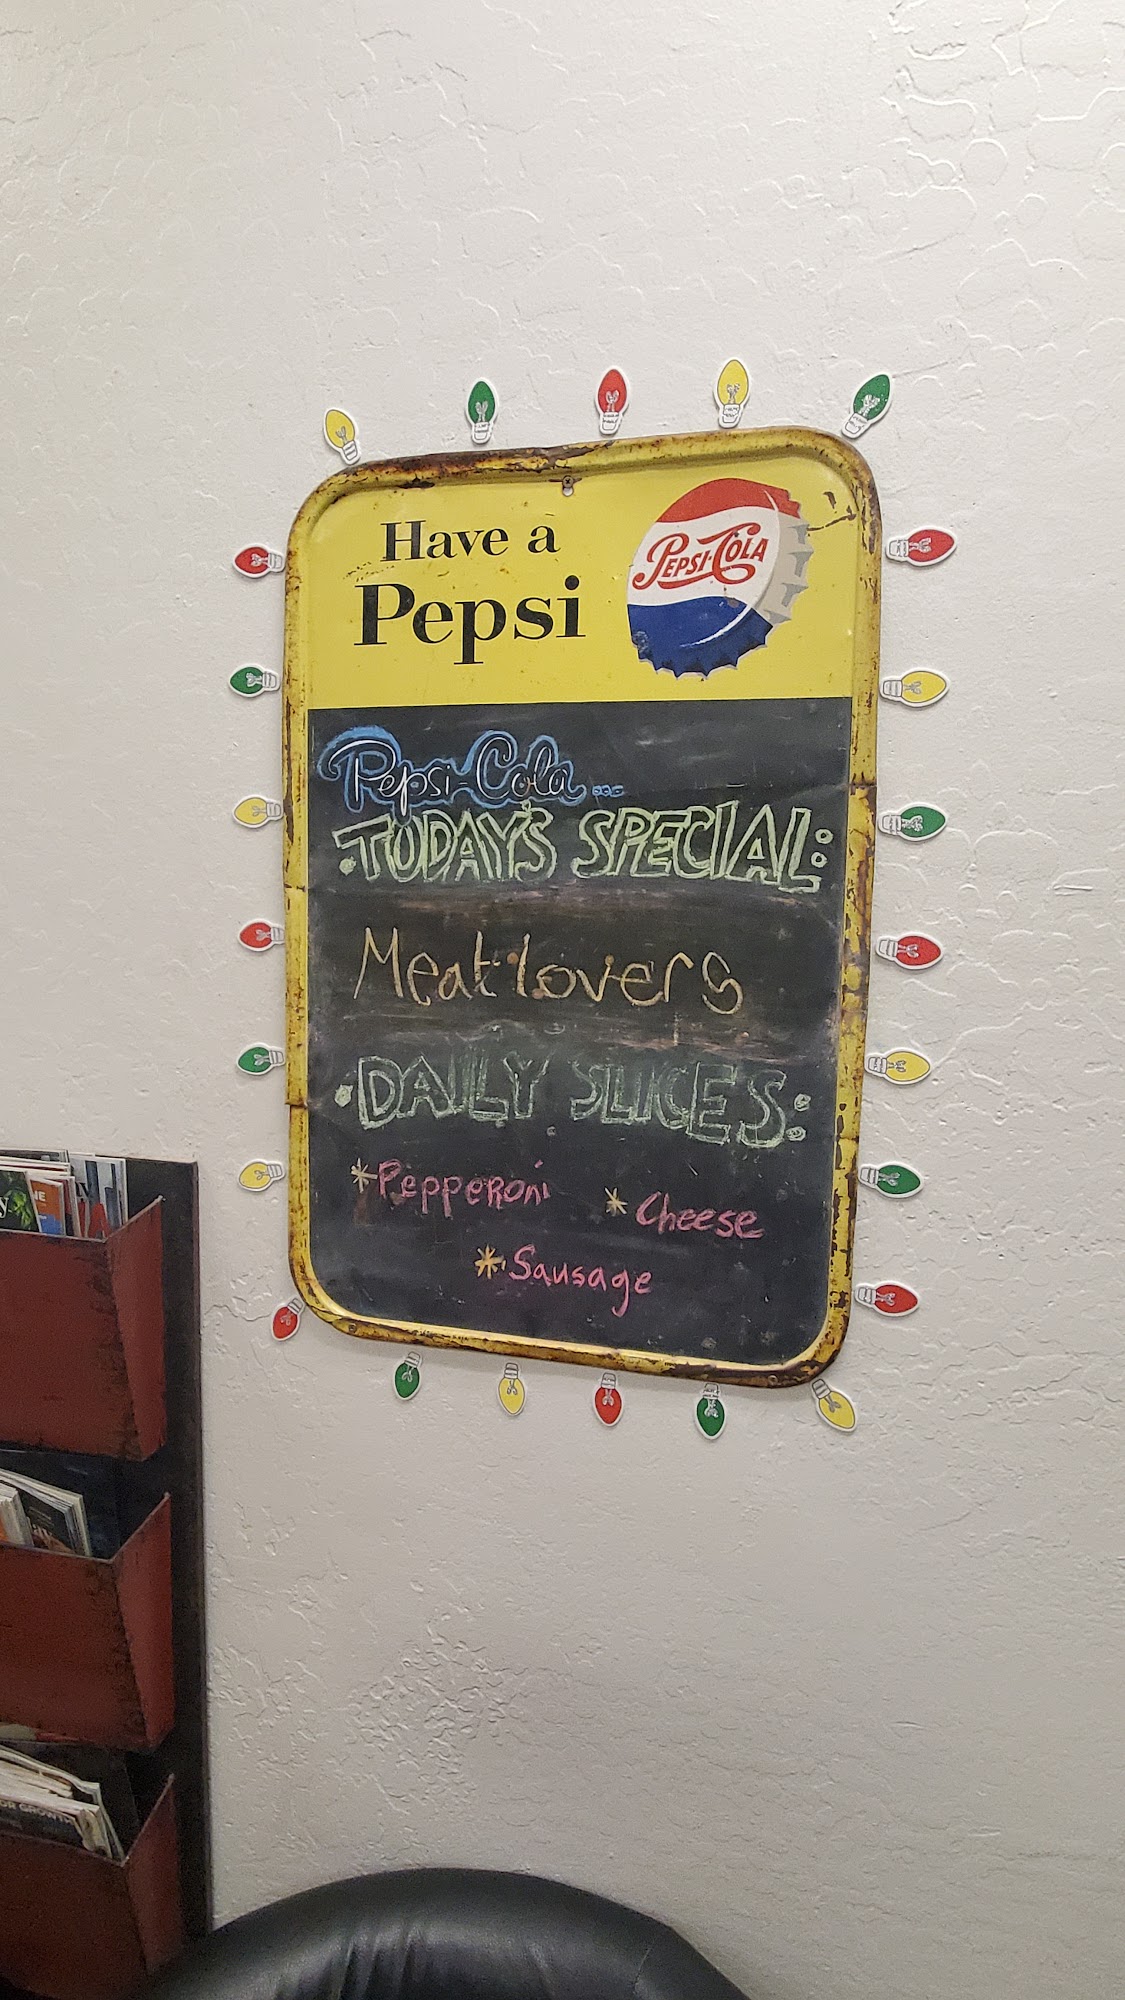 Have a
Pepsi
PEPSI-COLA
Pepsi-Cola...
TODAY'S SPECIAL:
Meatlovers
DAILY SLICES:
*Pepperoni
*Cheese
*Sausage